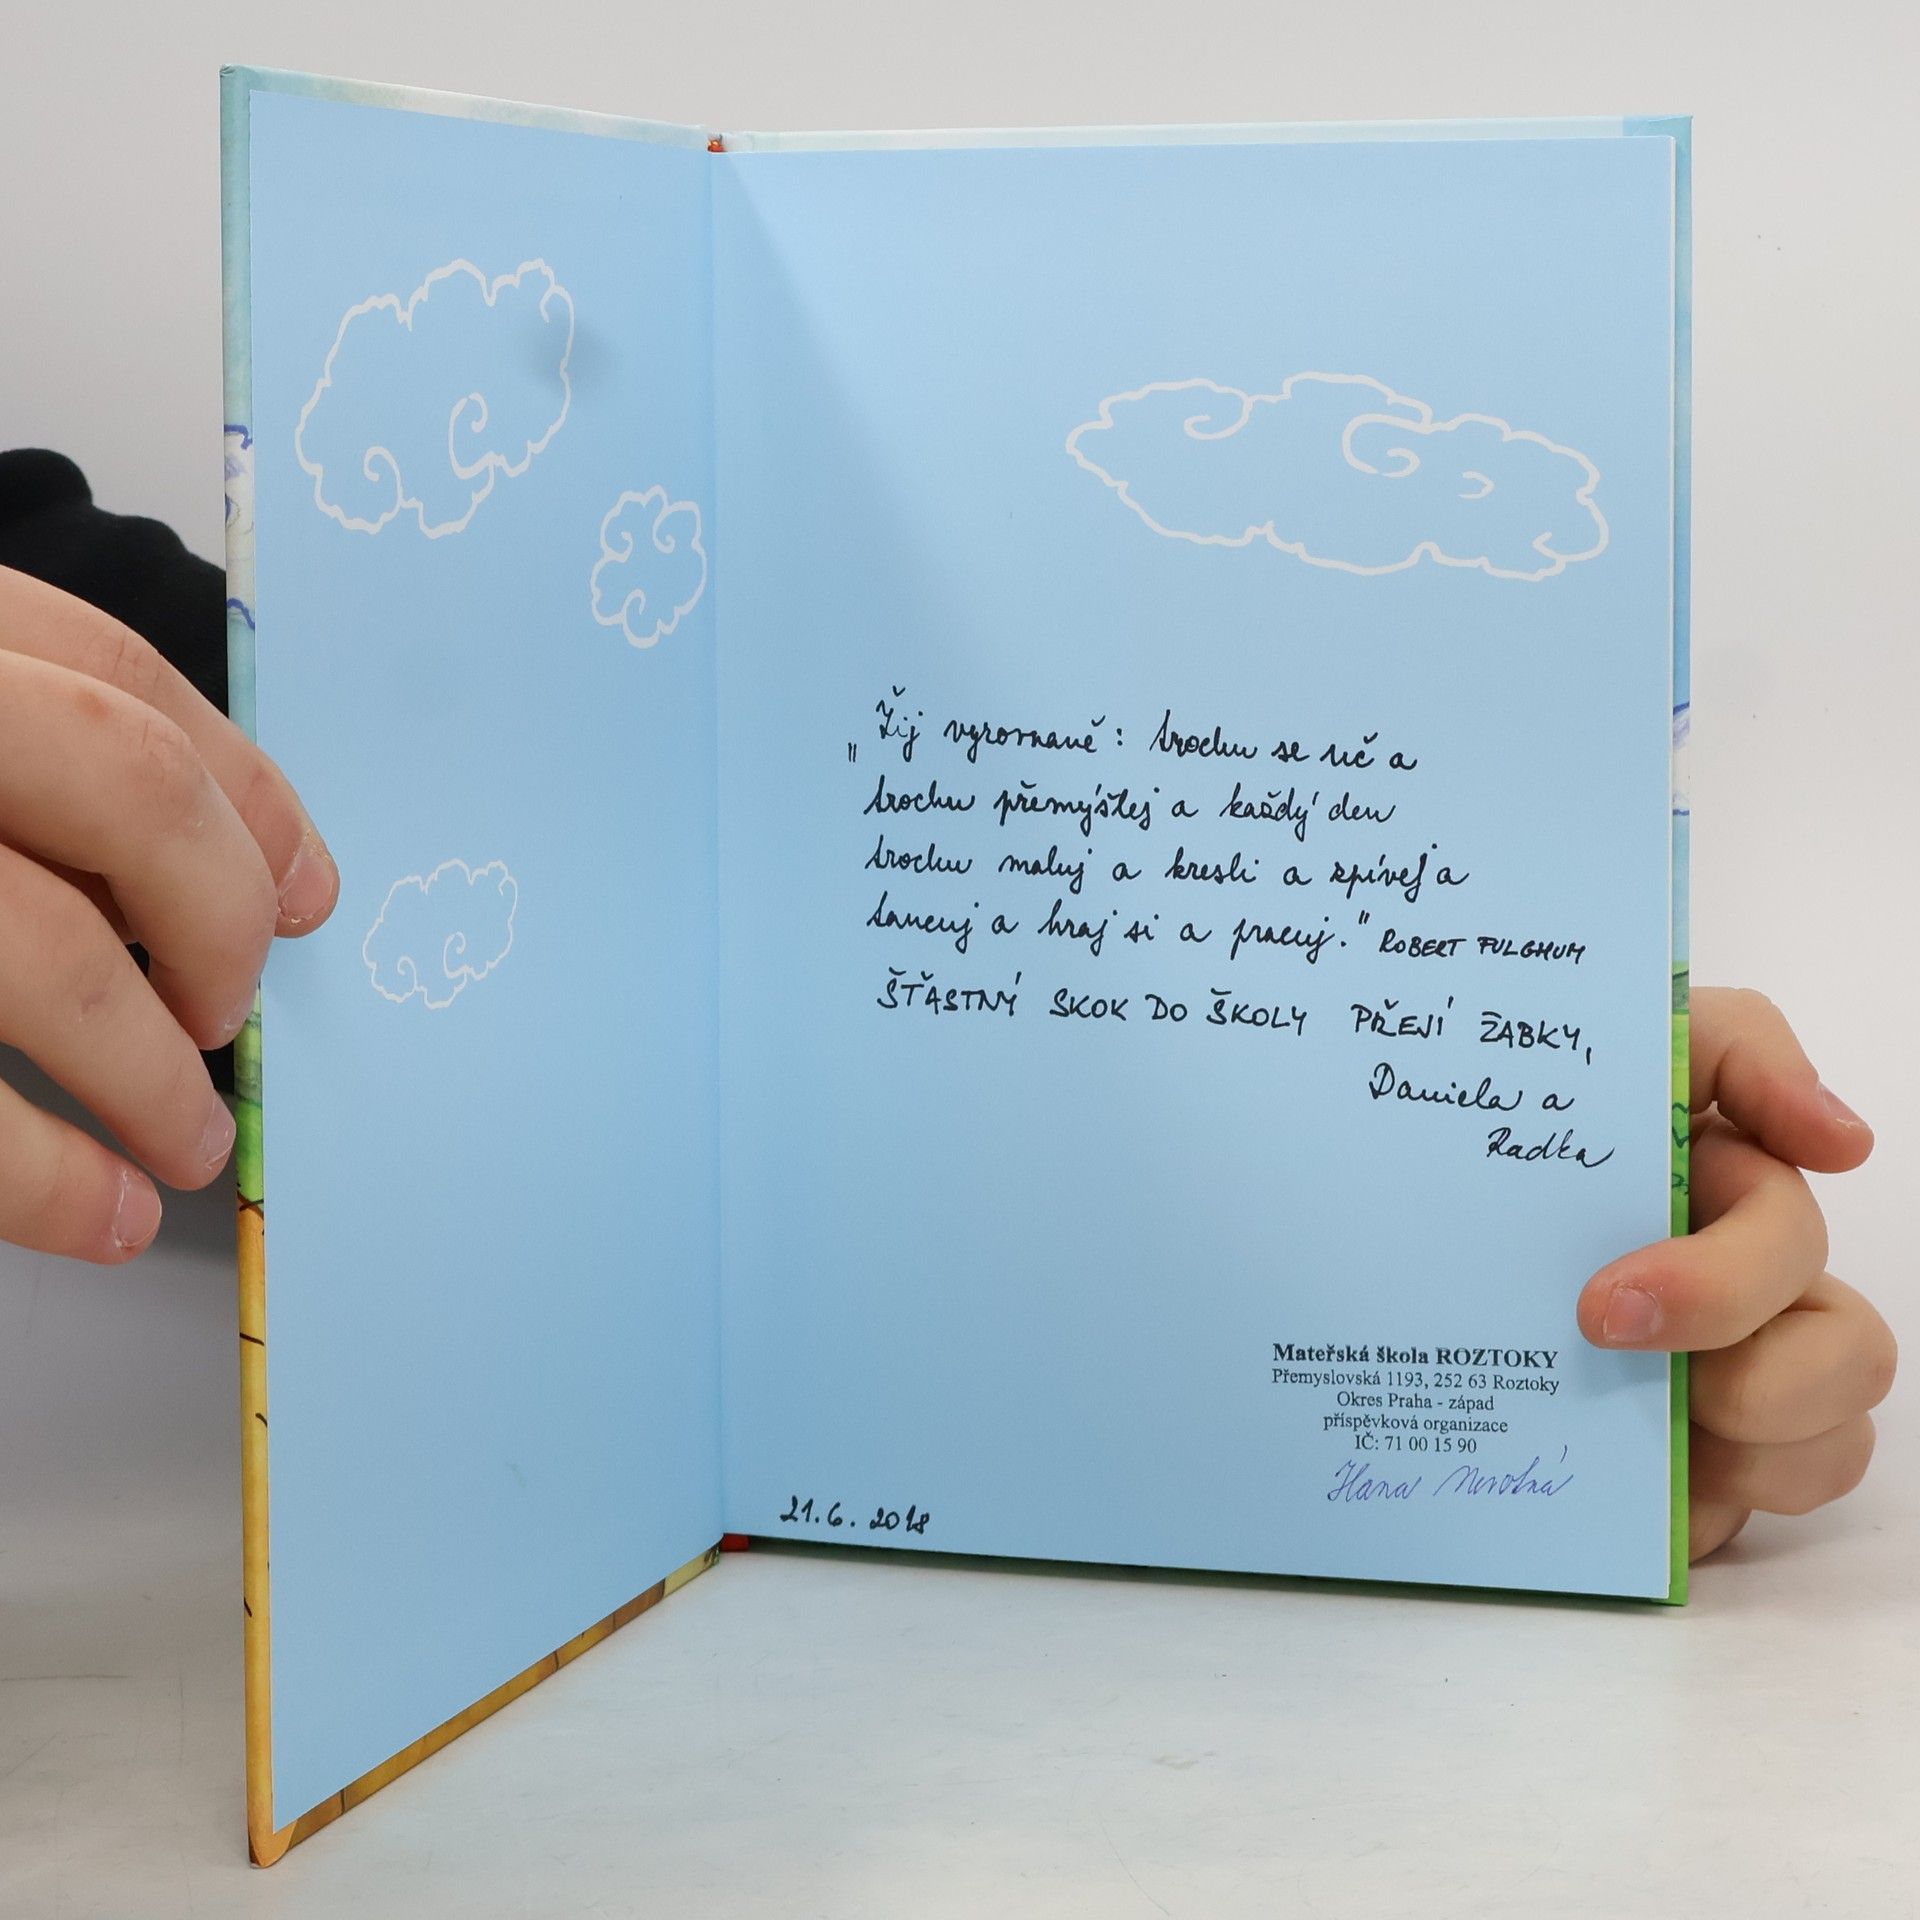 „Žij vyrovnaně: trochu se uč a
trochu přemýšlej a každý den
trochu maluj a kresli a zpívej a
tancuj a hraj si a pracuj." ROBERT FULGHUM
ŠŤASTNÝ SKOK DO ŠKOLY PŘEJÍ ŽABKY,
Daniela a
Radka
Mateřská škola ROZTOKY
Přemyslovská 1193, 252 63 Roztoky
Okres Praha - západ
příspěvková organizace
IČ: 71 00 15 90
Hana
21.6. 2018